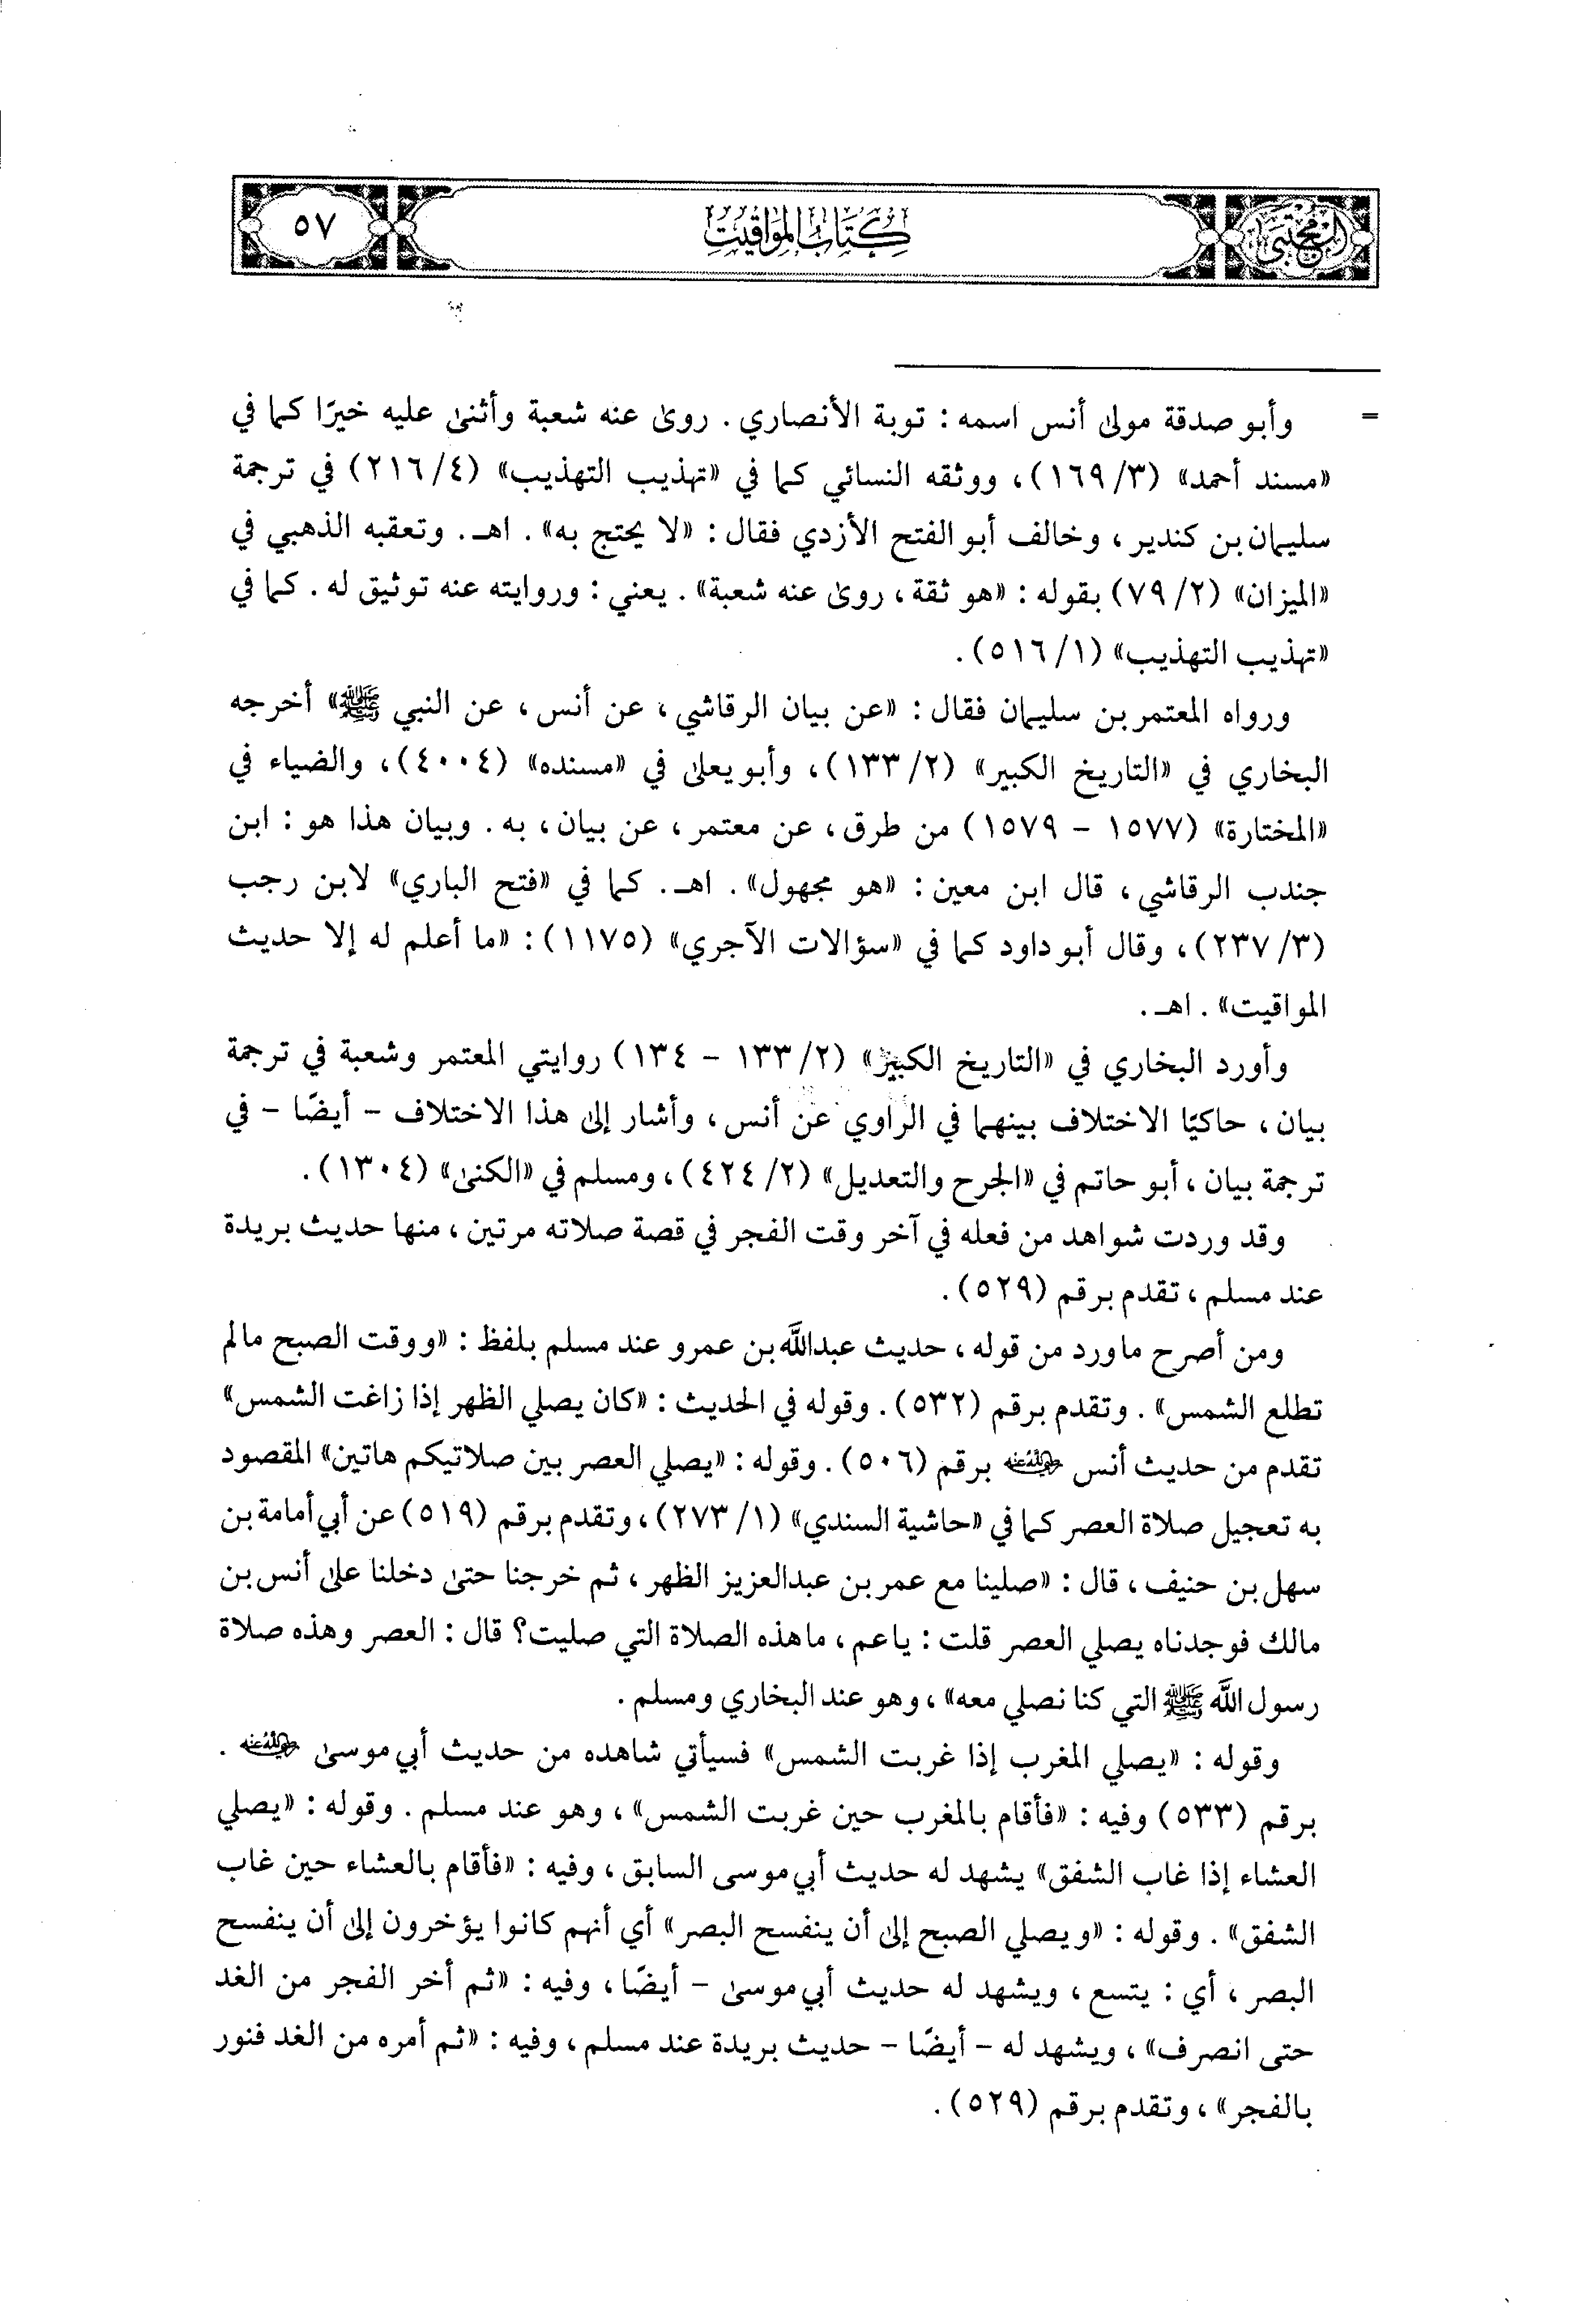 المجتبى
كتاب المواقيت
٥٧
= وأبو صدقة مولى أنس اسمه : توبة الأنصاري . روى عنه شعبة وأثنى عليه خيرًا كما في
«مسند أحمد» (٣/ ١٦٩)، ووثقه النسائي كما في «تهذيب التهذيب» (٤/ ٢١٦) في ترجمة
سليمان بن كندير ، وخالف أبو الفتح الأزدي فقال : «لا يحتج به» . اهـ. وتعقبه الذهبي في
«الميزان» (٢/ ٧٩) بقوله : «هو ثقة، روى عنه شعبة» . يعني : وروايته عنه توثيق له . كما في
«تهذيب التهذيب» (١/ ٥١٦).
ورواه المعتمر بن سليمان فقال : «عن بيان الرقاشي ، عن أنس ، عن النبي ﷺ» أخرجه
البخاري في «التاريخ الكبير» (٢/ ١٣٣)، وأبو يعلى في «مسنده» (٤٠٠٤)، والضياء في
«المختارة» (١٥٧٧ - ١٥٧٩) من طرق ، عن معتمر ، عن بيان ، به . وبيان هذا هو : ابن
جندب الرقاشي ، قال ابن معين : «هو مجهول» . اهـ. كما في «فتح الباري» لابن رجب
(٣/ ٢٣٧)، وقال أبو داود كما في «سؤالات الآجري» (١١٧٥) : «ما أعلم له إلا حديث
المواقيت» . اهـ .
وأورد البخاري في «التاريخ الكبير» (٢/ ١٣٣ - ١٣٤) روايتي المعتمر وشعبة في ترجمة
بيان ، حاكيًا الاختلاف بينهما في الراوي عن أنس ، وأشار إلى هذا الاختلاف - أيضًا - في
ترجمة بيان ، أبو حاتم في «الجرح والتعديل» (٢/ ٤٢٤) ، ومسلم في «الكنى» (١٣٠٤).
وقد وردت شواهد من فعله في آخر وقت الفجر في قصة صلاته مرتين ، منها حديث بريدة
عند مسلم ، تقدم برقم (٥٢٩).
ومن أصرح ما ورد من قوله ، حديث عبدالله بن عمرو عند مسلم بلفظ : «ووقت الصبح ما لم
تطلع الشمس» . وتقدم برقم (٥٣٢) . وقوله في الحديث : «كان يصلي الظهر إذا زاغت الشمس»
تقدم من حديث أنس رضي الله عنه برقم (٥٠٦) . وقوله : «يصلي العصر بين صلاتيكم هاتين» المقصود
به تعجيل صلاة العصر كما في «حاشية السندي» (١/ ٢٧٣) ، وتقدم برقم (٥١٩) عن أبي أمامة بن
سهل بن حنيف ، قال : «صلينا مع عمر بن عبدالعزيز الظهر ، ثم خرجنا حتى دخلنا على أنس بن
مالك فوجدناه يصلي العصر قلت : يا عم ، ما هذه الصلاة التي صليت؟ قال : العصر وهذه صلاة
رسول الله ﷺ التي كنا نصلي معه» ، وهو عند البخاري ومسلم .
وقوله : «يصلي المغرب إذا غربت الشمس» فسيأتي شاهده من حديث أبي موسى رضي الله عنه .
برقم (٥٣٣) وفيه : «فأقام بالمغرب حين غربت الشمس» ، وهو عند مسلم . وقوله : «يصلي
العشاء إذا غاب الشفق» يشهد له حديث أبي موسى السابق ، وفيه : «فأقام بالعشاء حين غاب
الشفق» . وقوله : «ويصلي الصبح إلى أن ينفسح البصر» أي أنهم كانوا يؤخرون إلى أن ينفسح
البصر ، أي : يتسع ، ويشهد له حديث أبي موسى - أيضًا ، وفيه : «ثم أخر الفجر من الغد
حتى انصرف» ، ويشهد له - أيضًا - حديث بريدة عند مسلم ، وفيه : «ثم أمره من الغد فنور
بالفجر» ، وتقدم برقم (٥٢٩).